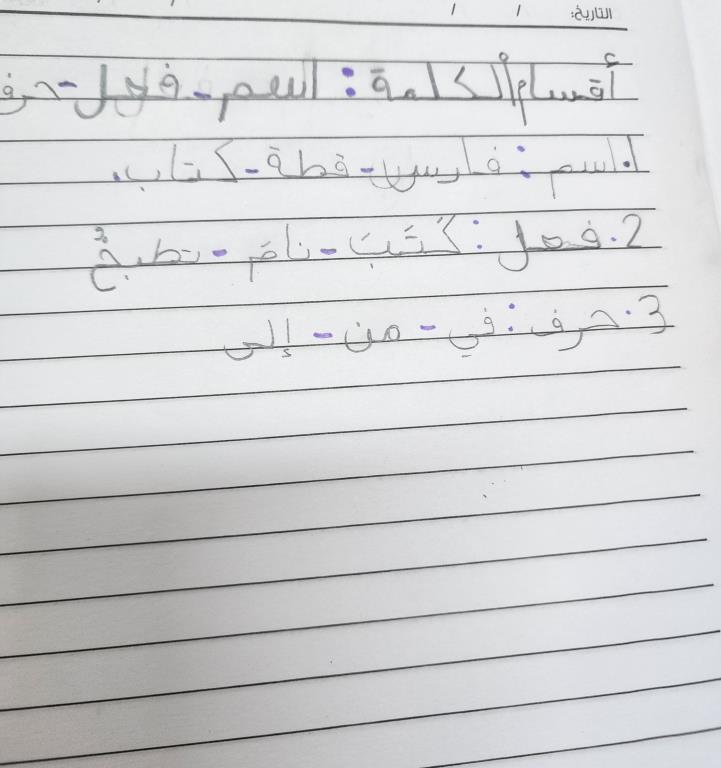 التاريخ: / /
أقسام الكلمة: اسم - فعل - حرف
1. اسم: فارس - قطة - كتاب.
2. فعل: كَتَبَ - نامَ - تطبخُ
3. حرف: في - من - إلى